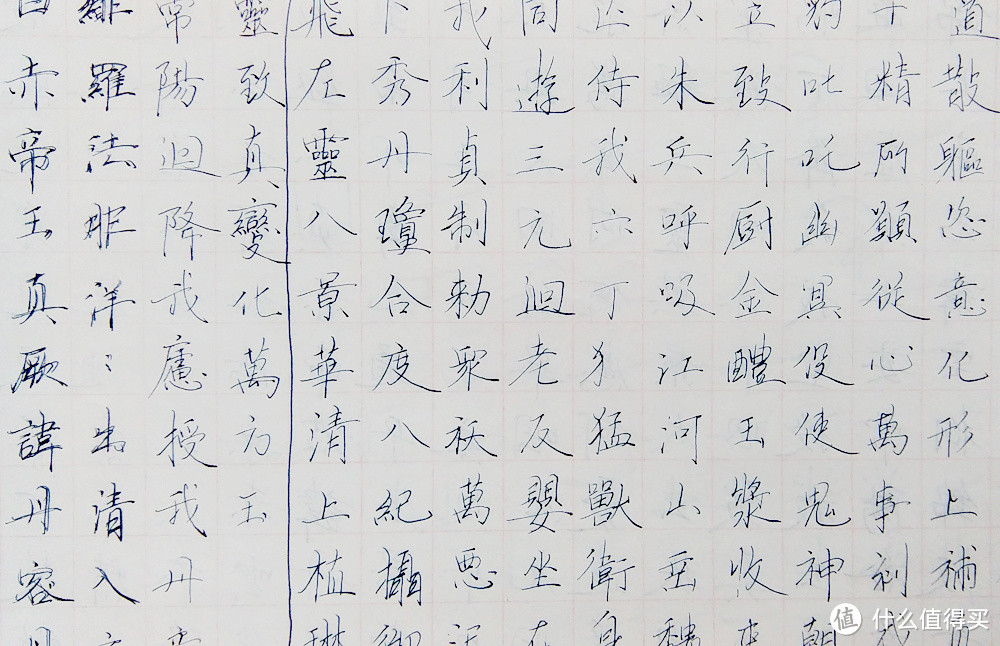 道散軀恣意化形上補
精所願從心萬事剋我
豹叱吒幽冥役使鬼神朝
立致行厨金醴玉漿收
以朱兵呼吸江河山岳
正侍我六丁犲猛獸衛身
同遊三元迴老反嬰坐在
我利貞制勑眾祅萬惡
下秀丹瓊合度八紀攝御
飛左靈八景華清上植琳
靈致真變化萬方玉
常陽迴降我廬授我丹
緋羅法服洋：出清入
白赤帝玉真厥諱丹容丹
值 什么值得买